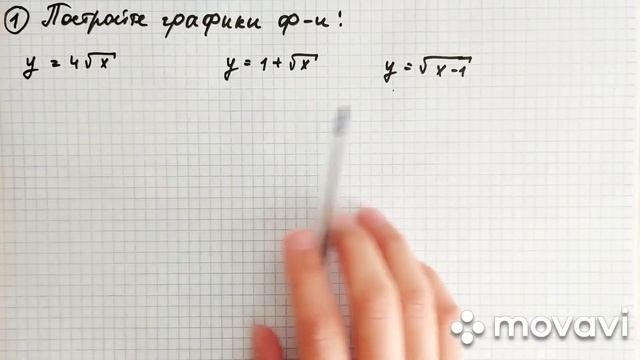 ① Постройте графики ф-и:
y = 4√x y = 1 + √x y = √x-1
movavi